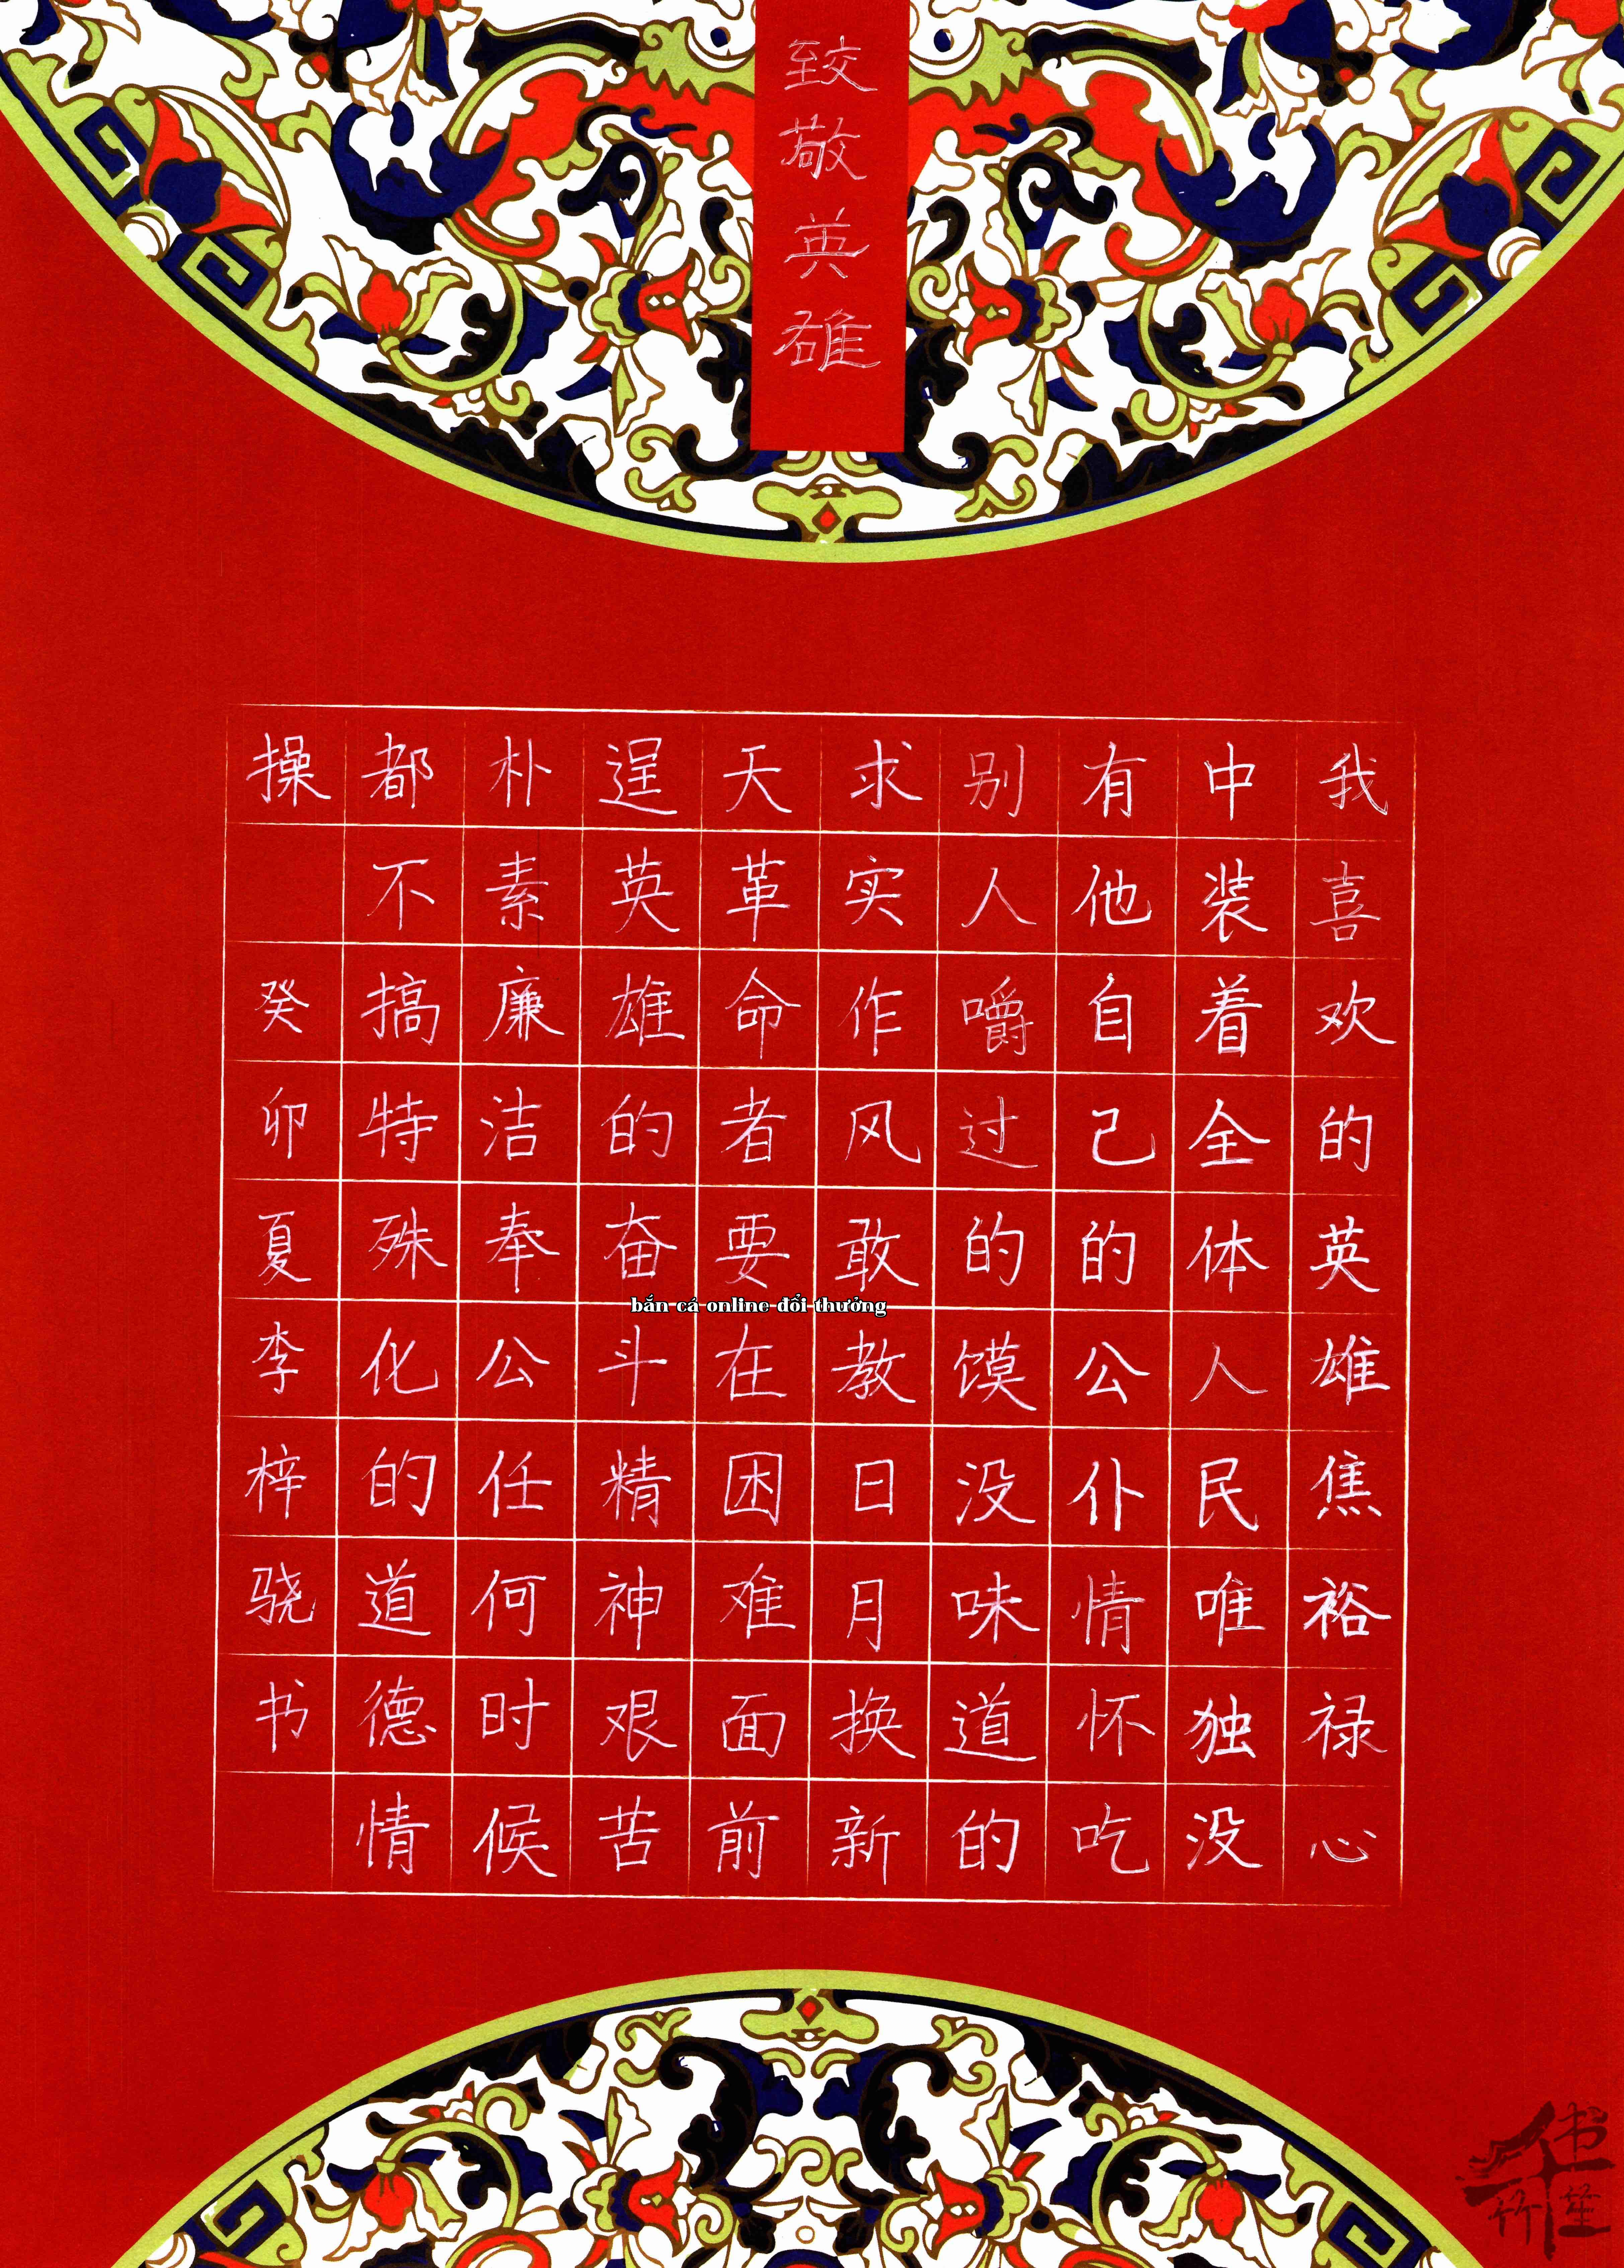 致敬英雄
我喜欢的英雄焦裕禄心
中装着全体人民唯独没
有他自己的公仆情怀吃
别人嚼过的馍没味道的
求实作风敢教日月换新
天革命者要在困难面前
逞英雄的奋斗精神艰苦
朴素廉洁奉公任何时候
都不搞特殊化的道德情
操 癸卯夏李梓骁书
bắn cá online đổi thưởng